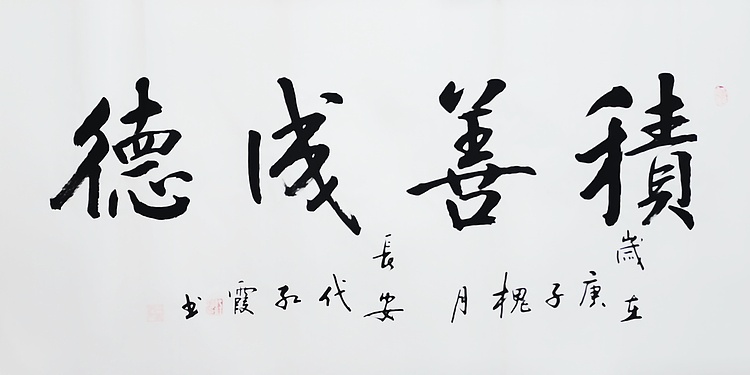 積善成德
歲在庚子槐月長安代紅霞书